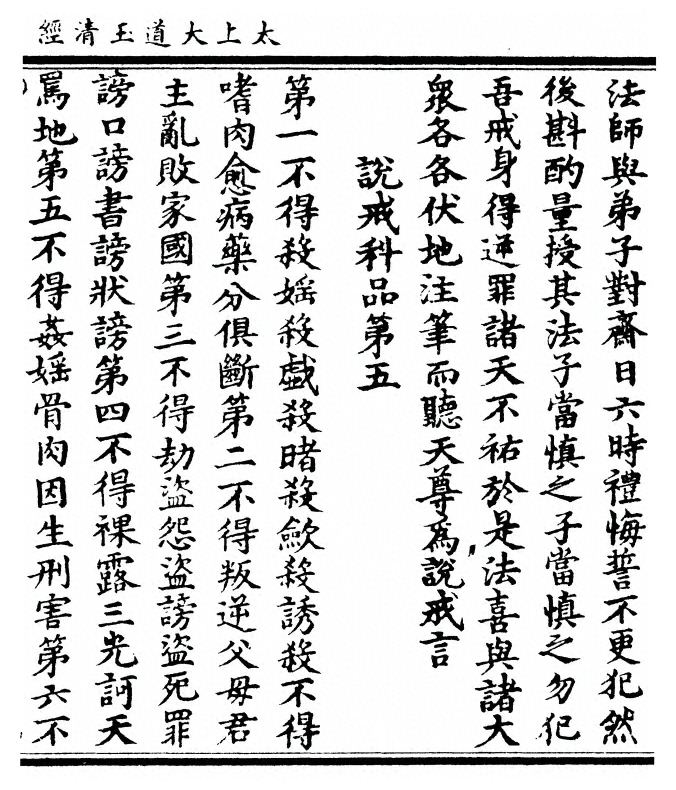 太上大道玉清經
法師與弟子對齋日六時禮悔誓不更犯然
後斟酌量授其法子當慎之子當慎之勿犯
吾戒身得逆罪諸天不祐於是法喜與諸大
衆各各伏地注筆而聽天尊爲說戒言
說戒科品第五
第一不得殺婬殺戱殺睹殺歛殺誘殺不得
嗜肉愈病藥分俱斷第二不得叛逆父母君
主亂敗家國第三不得劫盜怨盜謗盜死罪
謗口謗書謗狀謗第四不得裸露三光訶天
罵地第五不得姦婬骨肉因生刑害第六不